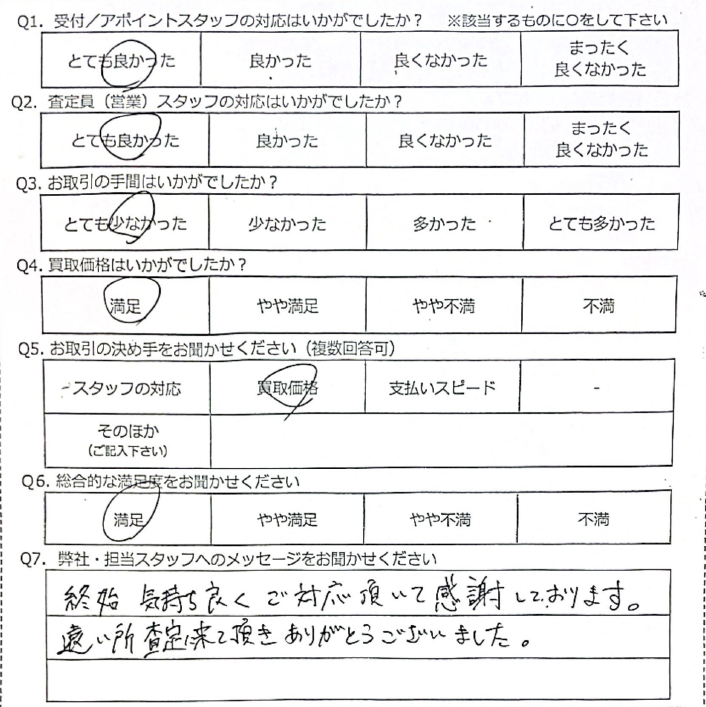 Q1. 受付／アポイントスタッフの対応はいかがでしたか？ ※該当するものに〇をして下さい
とても良かった 良かった 良くなかった まったく良くなかった
Q2. 査定員（営業）スタッフの対応はいかがでしたか？
とても良かった 良かった 良くなかった まったく良くなかった
Q3. お取引の手間はいかがでしたか？
とても少なかった 少なかった 多かった とても多かった
Q4. 買取価格はいかがでしたか？
満足 やや満足 やや不満 不満
Q5. お取引の決め手をお聞かせください（複数回答可）
スタッフの対応 買取価格 支払いスピード -
そのほか
（ご記入下さい）
Q6. 総合的な満足度をお聞かせください
満足 やや満足 やや不満 不満
Q7. 弊社・担当スタッフへのメッセージをお聞かせください
終始 気持ち良く ご対応頂いて感謝しております。
遠い所査定に来て頂きありがとうございました。